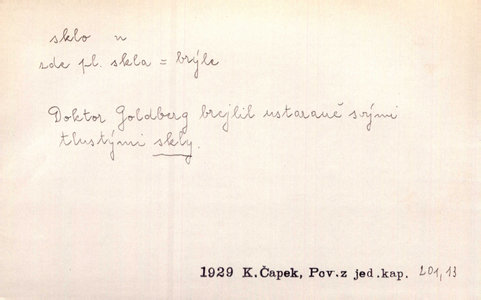 sklo n
zde pl. skla = brýle
Doktor Goldberg brejlil ustaraně svými
tlustými skly.
1929 K.Čapek, Pov.z jed.kap. 201,13